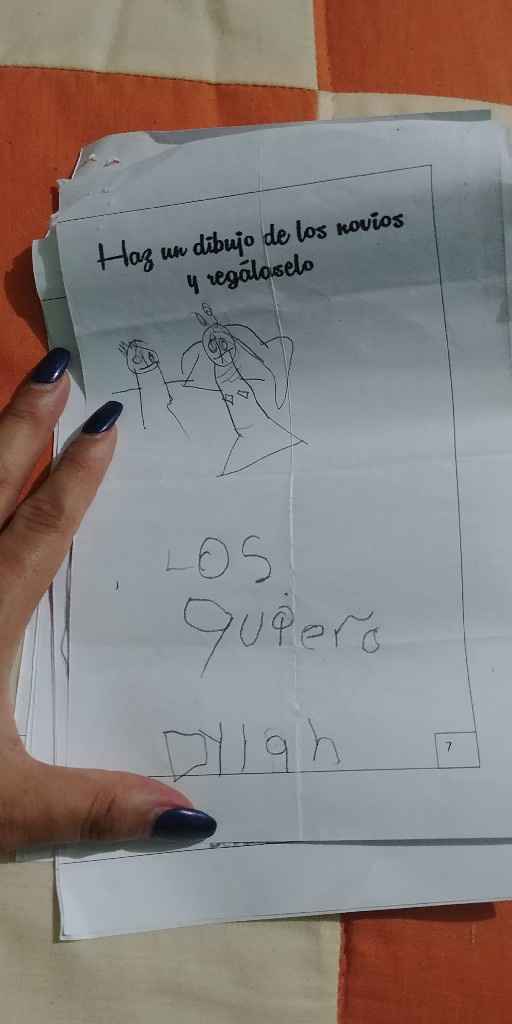 Haz un dibujo de los novios
y regálaselo
LOS
quiero
Dylan
7